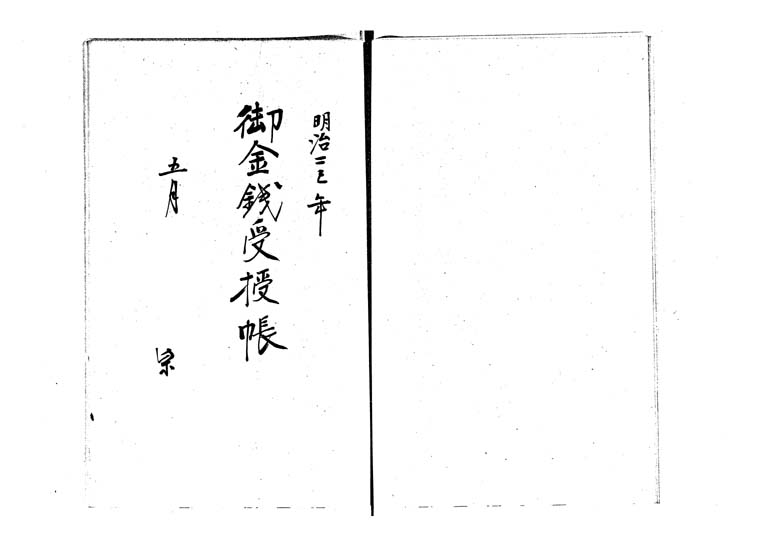 明治二三年
御金銭受授帳
五月